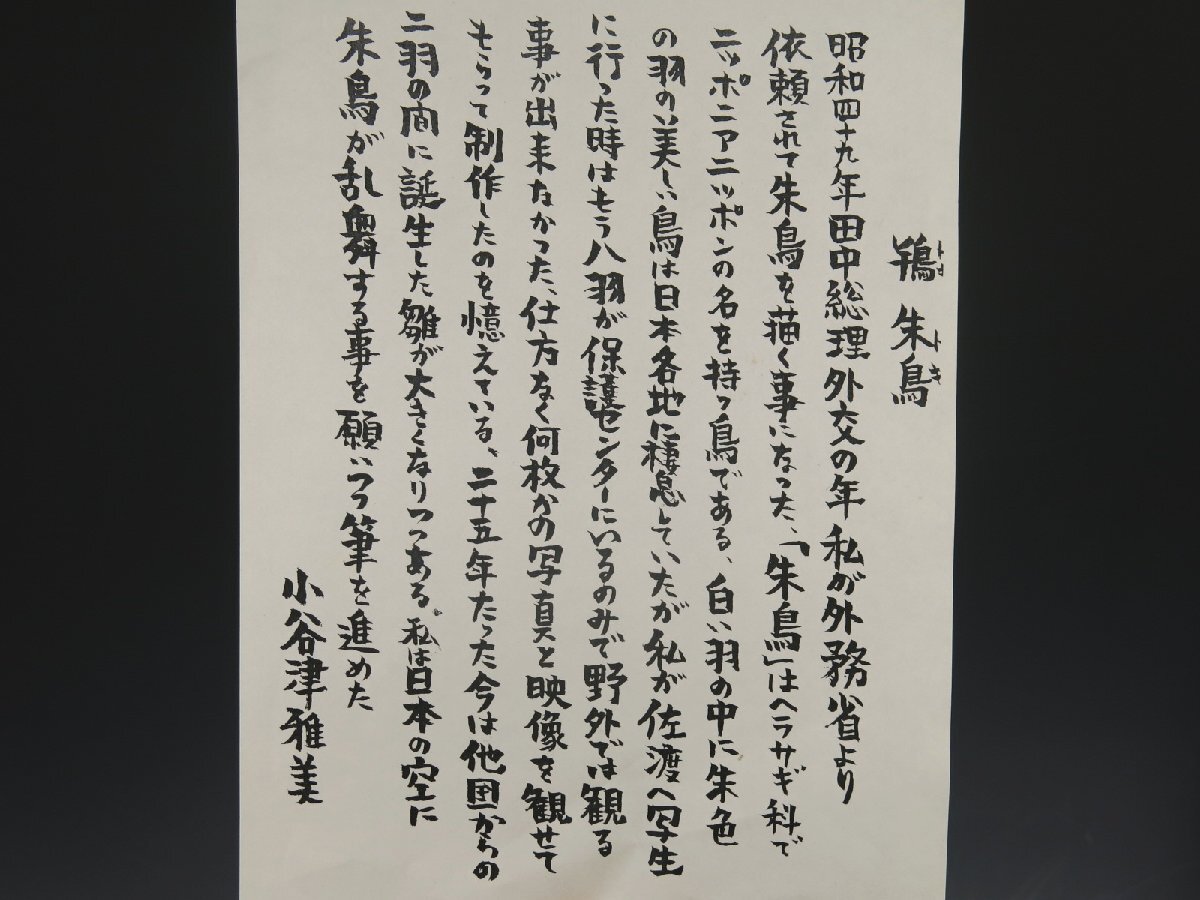 鴇 朱鳥
トキ トキ
昭和四十九年田中総理外交の年私が外務省より
依頼されて朱鳥を描く事になった、「朱鳥」はヘラサギ科で
ニッポニアニッポンの名を持つ鳥である、白い羽の中に朱色
の羽の美しい鳥は日本各地に棲息していたが私が佐渡へ写生
に行った時はもう八羽が保護センターにいるのみで野外では観る
事が出来なかった、仕方なく何枚かの写真と映像を観せて
もらって制作したのを憶えている、二十五年たった今は他国からの
二羽の間に誕生した雛が大きくなりつつある。私は日本の空に
朱鳥が乱舞する事を願いつつ筆を進めた
小谷津雅美